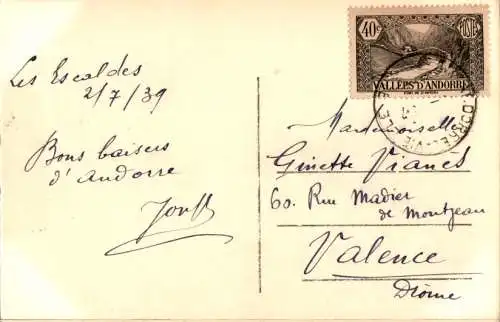 Les Escaldes
2/7/39
Bons baisers
d'Andorre
40c POSTES
VALLEES D'ANDORRE
Mademoiselle
Ginette Vianès
60. Rue Madier
de Montjeau
Valence
Drôme